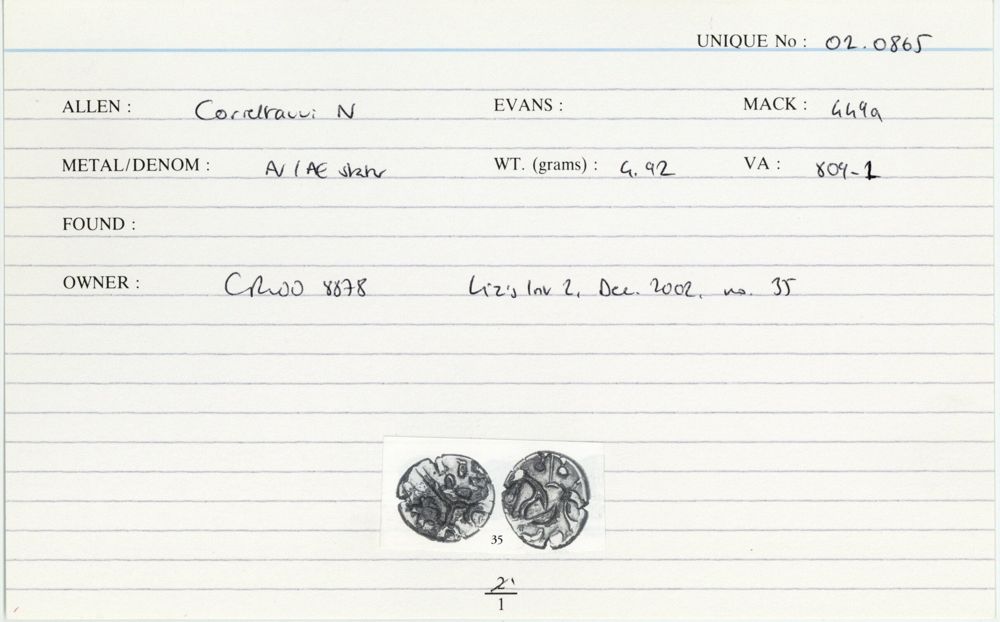 UNIQUE No : 02.0865
ALLEN : Correltauvi N EVANS : MACK : 449a
METAL/DENOM : AV/AE stater WT. (grams) : 4.92 VA : 809-1
FOUND :
OWNER : CR00 8878 Liz's Inv 2, Dec. 2002, no. 35
35
2
1